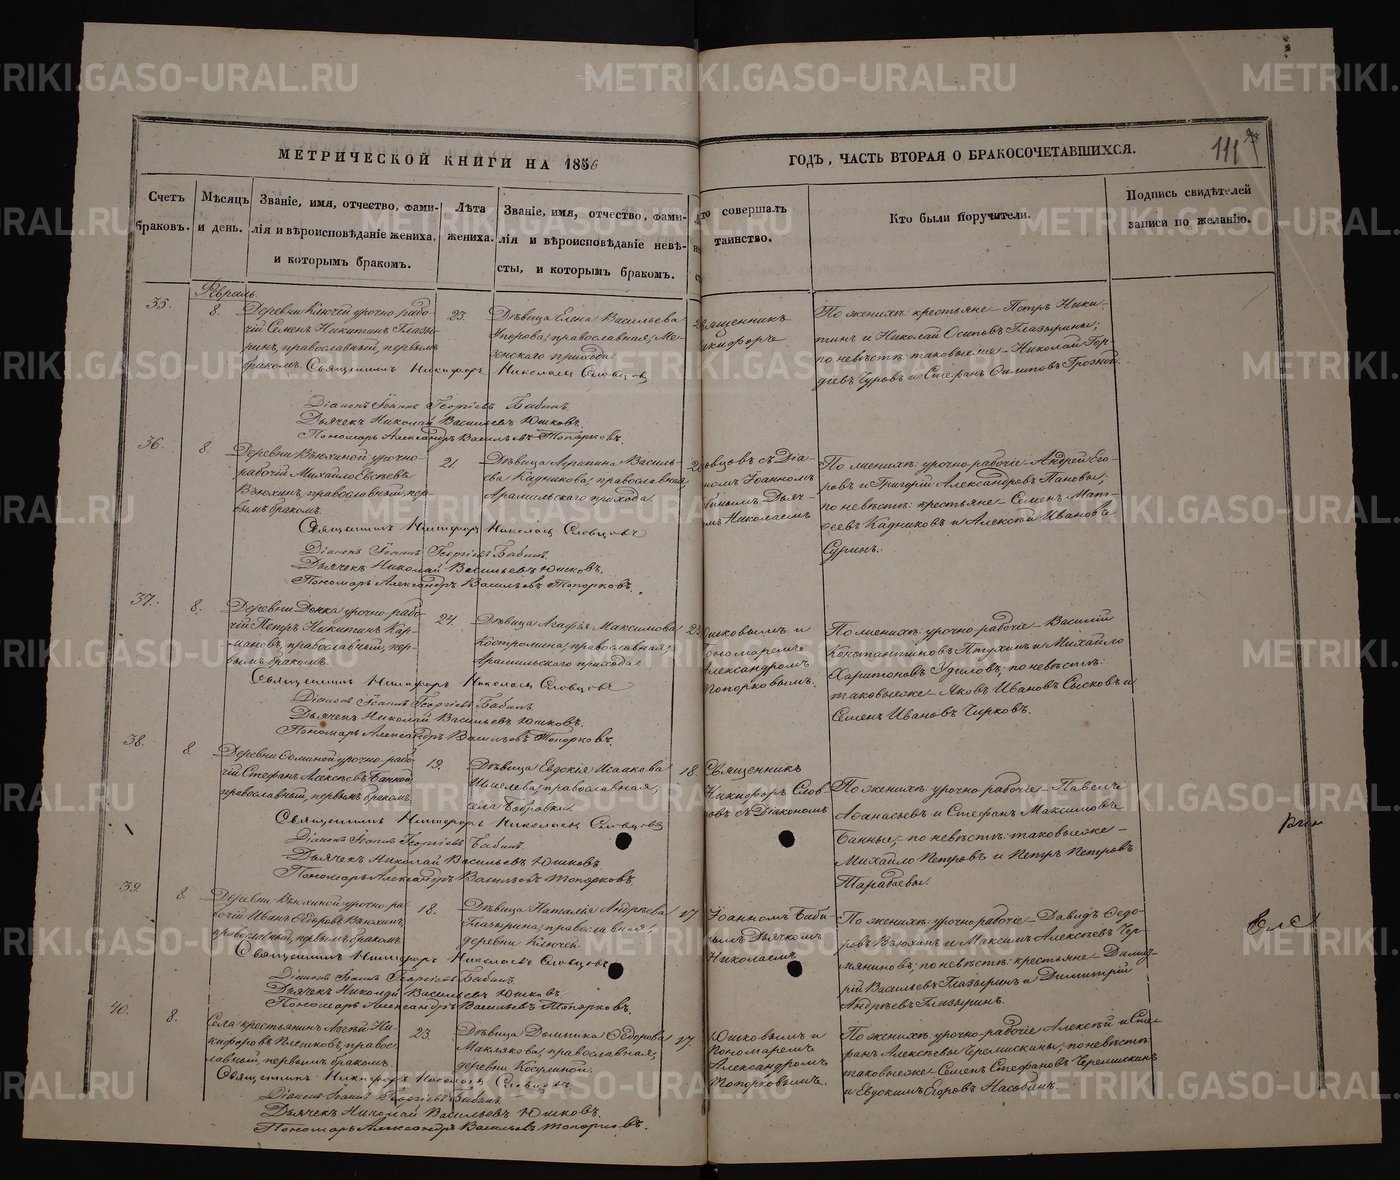 METRIKI.GASO-URAL.RU
111
МЕТРИЧЕСКОЙ КНИГИ НА 1856
ГОДЪ, ЧАСТЬ ВТОРАЯ О БРАКОСОЧЕТАВШИХСЯ.
Счетъ браковъ.
Мѣсяцъ и день.
Званіе, имя, отчество, фами-
лія и вѣроисповѣданіе жениха,
и которымъ бракомъ.
Лѣта жениха.
Званіе, имя, отчество, фами-
лія и вѣроисповѣданіе невѣ-
сты, и которымъ бракомъ.
то совершалъ
таинство.
Кто были поручители.
Подпись свидѣтелей
записи по желанію.
Февраль.
35.
8.
Деревни Ключей урочно-рабо-
чій Семенъ Никитинъ Глазы-
ринъ, православный, первымъ
бракомъ.
23.
Дѣвица Елена Васильева
православная,
прихода.
вященникъ
икифоръ
По женихѣ: крестьяне – Петръ Ники-
тинъ и Николай Осиповъ Глазырины;
по невѣстѣ: таковые же – Николай Гор-
дѣевъ Чуровъ и Стефанъ Филиповъ
Священникъ Никифоръ Николаевъ Словцовъ
Діаконъ Іоаннъ Георгіевъ Бабинъ.
Дьячекъ Николай Васильевъ Юшковъ.
Пономарь Александръ Васильевъ Топорковъ.
36.
8.
Деревни Вьюхиной урочно-
рабочій Михайло
Вьюхинъ, православный, пер-
вымъ бракомъ.
21.
Дѣвица Агрипина Василь-
ева Кадникова, православная
Арамильскаго прихода
овцовъ съ Діа-
кономъ Іоанномъ
Бабинымъ Дьяч-
комъ Николаемъ
По женихѣ: урочно-рабочіе – Андрей Его-
ровъ и Григорій Александровъ Пановы;
по невѣстѣ: крестьяне – Семенъ Мат-
ѳеевъ Кадниковъ и Алексѣй Ивановъ
Суринъ.
Священникъ Никифоръ Николаевъ Словцовъ
Діаконъ Іоаннъ Георгіевъ Бабинъ.
Дьячекъ Николай Васильевъ Юшковъ.
Пономарь Александръ Васильевъ Топорковъ.
37.
8.
Деревни урочно-рабо-
чій Петръ Никитинъ Кар-
мановъ, православный, пер-
вымъ бракомъ.
24.
Дѣвица Агафія Максимова
Костромина, православная,
Арамильскаго прихода
Юшковымъ и
Пономаремъ
Александромъ
Топорковымъ.
По женихѣ: урочно-рабочіе – Василій
Константиновъ Птухинъ и Михайло
Харитоновъ Удиловъ; по невѣстѣ:
таковые же – Яковъ Ивановъ Сысковъ и
Семенъ Ивановъ Чирковъ.
Священникъ Никифоръ Николаевъ Словцовъ
Діаконъ Іоаннъ Георгіевъ Бабинъ.
Дьячекъ Николай Васильевъ Юшковъ.
Пономарь Александръ Васильевъ Топорковъ.
38.
8.
Деревни урочно-рабо-
чій Стефанъ Алексѣевъ
православный, первымъ бракомъ.
19.
Дѣвица Евдокія Исаакова
Шмелева, православная,
села Бобровки.
18.
Священникъ
Никифоръ Слов-
цовъ съ Діакономъ
По женихѣ: урочно-рабочіе – Павелъ
Аѳанасьевъ и Стефанъ Максимовъ
Банные; по невѣстѣ: таковые же –
Михайло Петровъ и Петръ Петровъ
Тарабаевы.
Священникъ Никифоръ Николаевъ Словцовъ
Діаконъ Іоаннъ Георгіевъ Бабинъ.
Дьячекъ Николай Васильевъ Юшковъ
Пономарь Александръ Васильевъ Топорковъ.
39.
8.
Деревни Вьюхиной урочно-ра-
бочій Иванъ Ѳедоровъ Вьюхинъ,
православный, первымъ бракомъ.
18.
Дѣвица Наталія Андрѣева
Глазырина, православная,
деревни Ключей.
17
Іоанномъ Баби-
нымъ Дьячкомъ
Николаемъ
По женихѣ: урочно-рабочіе – Давидъ Ѳедо-
ровъ Вьюхинъ и Максимъ Алексѣевъ Чер-
мяниновъ; по невѣстѣ: крестьяне – Дмит-
рій Васильевъ Глазыринъ и Димитрій
Андрѣевъ Глазыринъ.
Священникъ Никифоръ Николаевъ Словцовъ
Діаконъ Іоаннъ Георгіевъ Бабинъ.
Дьячекъ Николай Васильевъ Юшковъ
Пономарь Александръ Васильевъ Топорковъ.
40.
8.
Села крестьянинъ Ни-
кифоровъ Плешковъ, право-
славный, первымъ бракомъ.
23.
Дѣвица Домника Ѳедорова
Маклакова, православная,
деревни Косулиной
17
Юшковымъ и
Пономаремъ
Александромъ
Топорковымъ.
По женихѣ: урочно-рабочіе Алексѣй и Сте-
фанъ Алексѣевы Черемискины; по невѣстѣ:
таковые же – Семенъ Стефановъ Черемискинъ
и Евдокимъ Егоровъ Насобинъ.
Священникъ Никифоръ Николаевъ Словцовъ
Діаконъ Іоаннъ Георгіевъ Бабинъ
Дьячекъ Николай Васильевъ Юшковъ.
Пономарь Александръ Васильевъ Топорковъ.